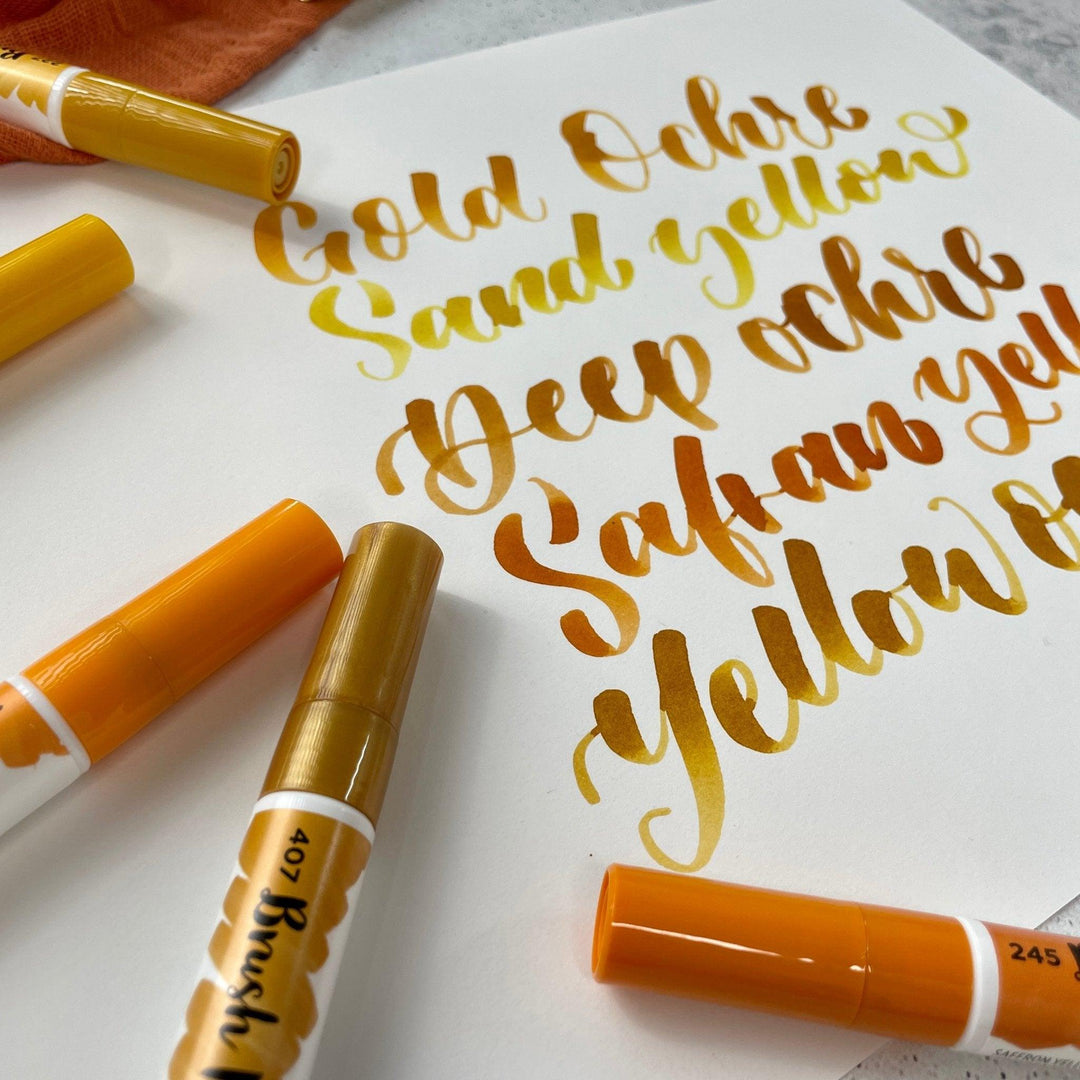 Gold Ochre
Sand yellow
Deep ochre
Safran Yell
Yellow
407 Brush
245
SAFFRON YEL